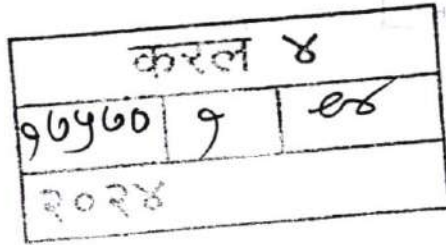 करल ४
१७५७० १
२०२४